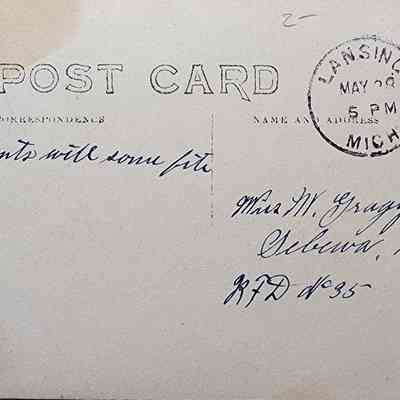 2-
POST CARD
LANSING
MAY 28
5 PM
MICH
CORRESPONDENCE
NAME AND ADDRESS
nts will some fite
Miss M. Gragg
Sebewa,
RFD No 35